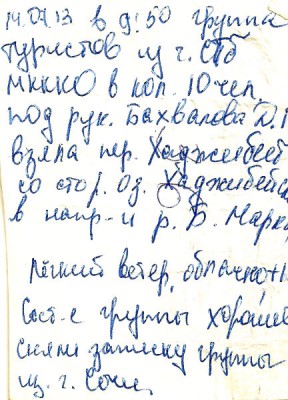 14.07.13 в 9:50 группа
туристов из г. СПб
МККО в кол. 10 чел,
под рук. Бахвалова Д.
взяла пер. Хаджибей
со стор. оз. Хаджибей
в напр-и р. Б. Марка
Лёгкий ветер, облачно +1
Сост-е группы хорошее
сняли записку группы
из г. Сочи,